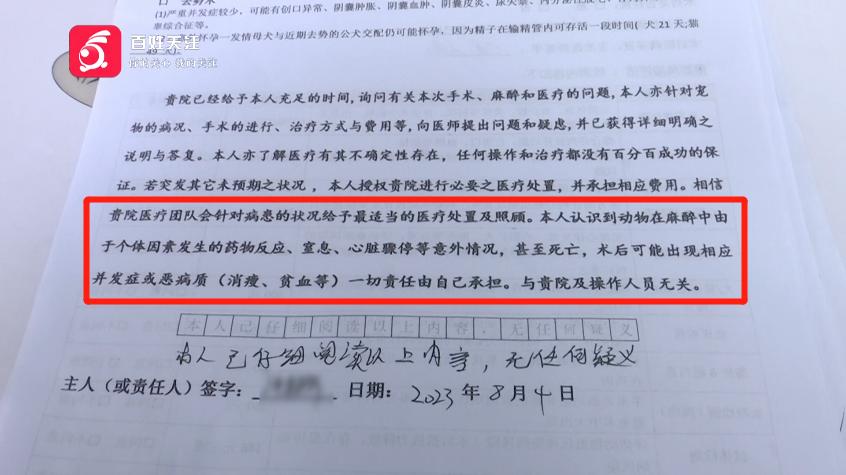 (1)严重并发症较少，可能有创口异常、阴囊肿胀、阴囊血肿、阴囊皮炎、尿失禁、
睾综合征等。
怀孕一发情母犬与近期去势的公犬交配仍可能怀孕，因为精子在输精管内可存活一段时间(犬21天;猫
百姓关注
你的关心 我的关注
贵院已经给予本人充足的时间,询问有关本次手术、麻醉和医疗的问题,本人亦针对宠
物的病况、手术的进行、治疗方式与费用等,向医师提出问题和疑虑,并已获得详细明确之
说明与答复。本人亦了解医疗有其不确定性存在，任何操作和治疗都没有百分百成功的保
证。若突发其它未预期之状况，本人授权贵院进行必要之医疗处置，并承担相应费用。相信
贵院医疗团队会针对病患的状况给予最适当的医疗处置及照顾。本人认识到动物在麻醉中由
于个体因素发生的药物反应、窒息、心脏骤停等意外情况，甚至死亡，术后可能出现相应
并发症或恶病质（消瘦、贫血等）一切责任由自己承担。与贵院及操作人员无关。
本人已仔细阅读以上内容，无任何疑义
本人已仔细阅读以上内容，无任何疑义
主人（或责任人）签字： 日期：2023年8月4日